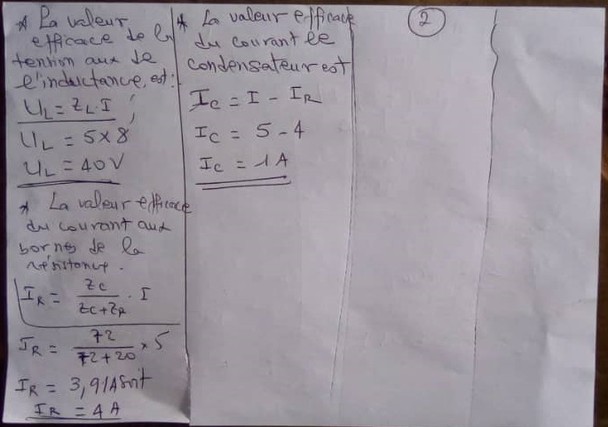 * La valeur
efficace de la
tension aux de
l'inductance, est:
UL = ZL.I ;
UL = 5x8
UL = 40V
* La valeur efficace
du courant aux
bornes de la
résistance.
IR = ZC / ZC+ZR . I
IR = 72 / 72+20 x 5
IR = 3,91A soit
IR = 4A
* La valeur efficace
du courant le
condensateur est
IC = I - IR
IC = 5-4
IC = 1A
2